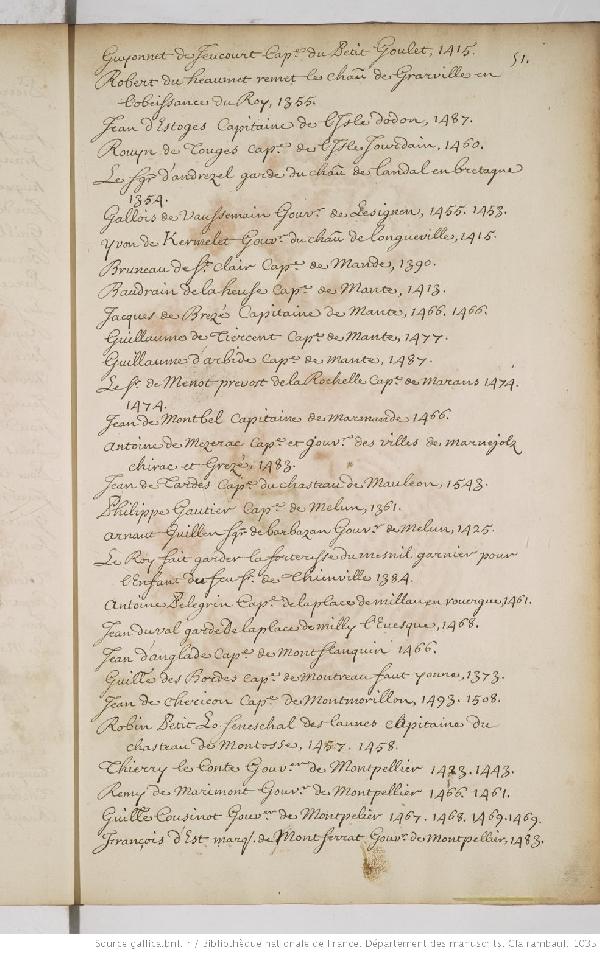 Guyonnet de Jeucourt Cap.ne du Petit Goulet, 1415.
51.
Robert du heaumet remet le chau de Grarville en
l'obeissance du Roy, 1355.
Jean d'Estoges Capitaine de L'Isle dodon, 1487.
Rouyn de Touges cap.ne de L'Isle Jourdain, 1460.
Le sgr d'andrezel garde du chau de landal en bretagne
1354.
Gallois de Vaussemain Gouv.r de Lesignen, 1455. 1453.
Yvon de Kermelet Gouv.r du chau de longueville, 1415.
Bruneau de St. Clair Cap.ne de Mande, 1390.
Baudrain de la heuse Cap.ne de Mante, 1413.
Jacques de Brezé Capitaine de Mante, 1466. 1466.
Guillaume de Tiercent Cap.ne de Mante, 1477.
Guillaume d'arbide Cap.ne de mante, 1487.
Le Sr. de Menot prevost de la Rochelle Cap.ne de marans 1474.
1474.
Jean de Montbel Capitaine de marmande 1466.
Antoine de Mezerac Cap.ne et gouv.r des villes de maruejolz
chirac et Grezé, 1483.
Jean de Tardes Cap.ne du chasteau de Mauleon, 1543.
Philippe Gautier Cap.ne de Melun, 1361.
arnaut Guillen sgr de barbazan Gouv.r de Melun, 1425.
Le Roy fait garder la forteresse du mesnil garnier pour
l'Enfant du feu Sr. de Thienville 1384.
Antoine Pelegrin Cap.ne de la place de millau en rouergue, 1461.
Jean du val garde de la place de milly l'Evesque, 1468.
Jean d'anglade Cap.ne de Montflanquin 1466.
Guille des Bordes cap.ne de montreau faut yonne, 1373.
Jean de Chericon Cap.ne de Montmorillon, 1493. 1508.
Robin Petit Lo seneschal des lannes Capitaine du
chasteau de Montosse, 1457. 1458.
Thierry le Conte Gouv.r de Montpellier 1423. 1443.
Remy de Marimont Gouv.r de Montpellier 1466. 1461.
Guille Cousinot Gouv.r de Montpelier 1467. 1468. 1469. 1469.
François d'Est marq. de Montferrat Gouv.r de Montpellier, 1483.
Source gallica.bnf.fr / Bibliothèque nationale de France. Département des manuscrits. Clairambault 1035